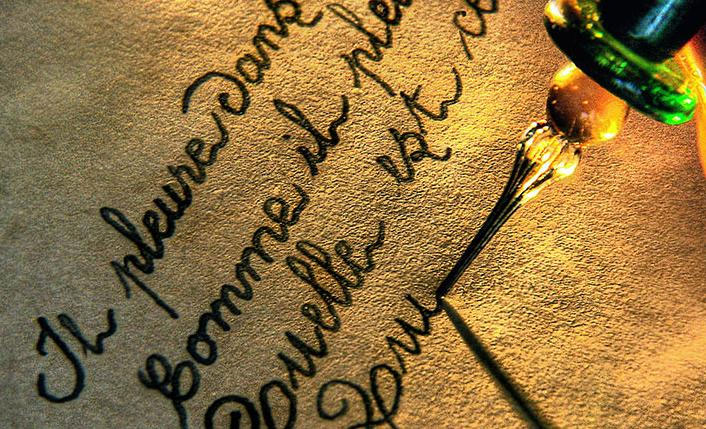 Il pleure dans
Comme il pleu
Quelle est ce
Qui